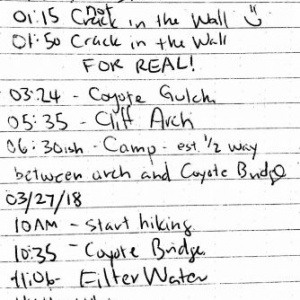 01:15 not Crack in the Wall
01:50 Crack in the Wall
FOR REAL!
03:24 - Coyote Gulch
05:35 - Cliff Arch
06:30ish - Camp - est. 1/2 way
between arch and Coyote Bridge
03/27/18
10AM - start hiking
10:35 - Coyote Bridge
11:06 - Filter Water